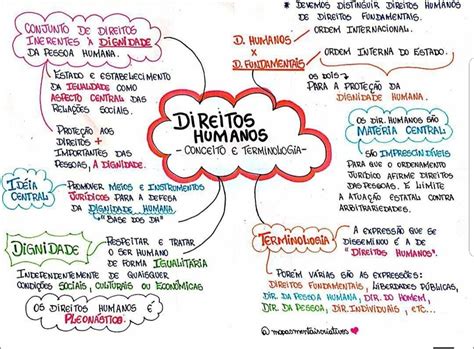 CONJUNTO DE DIREITOS
INERENTES À DIGNIDADE
DA PESSOA HUMANA.
ESTADO E ESTABELECIMENTO
DA IGUALDADE COMO
ASPECTO CENTRAL DAS
RELAÇÕES SOCIAIS.
PROTEÇÃO AOS
DIREITOS +
IMPORTANTES DAS
PESSOAS, A DIGNIDADE.
IDÉIA
CENTRAL:
PROMOVER MEIOS E INSTRUMENTOS
JURÍDICOS PARA A DEFESA
DA DIGNIDADE HUMANA
"BASE DOS DH"
DIGNIDADE
RESPEITAR E TRATAR
O SER HUMANO
DE FORMA IGUALITÁRIA
INDEPENDENTEMENTE DE QUAISQUER
CONDIÇÕES SOCIAIS, CULTURAIS OU ECONÔMICAS
OS DIREITOS HUMANOS É
PLEONÁSTICO.
DIREITOS
HUMANOS
- CONCEITO E TERMINOLOGIA -
* DEVEMOS DISTINGUIR DIREITOS HUMANOS
DE DIREITOS FUNDAMENTAIS.
D. HUMANOS
X
D. FUNDAMENTAIS
ORDEM INTERNACIONAL.
ORDEM INTERNA DO ESTADO.
OS DOIS
PARA A PROTEÇÃO DA
DIGNIDADE HUMANA.
OS DIR. HUMANOS SÃO
MATÉRIA CENTRAL:
SÃO IMPRESCINDÍVEIS
PARA QUE O ORDENAMENTO
JURÍDICO AFIRME DIREITOS
DAS PESSOAS, E LIMITE
A ATUAÇÃO ESTATAL CONTRA
ARBITRARIEDADES.
TERMINOLOGIA
A EXPRESSÃO QUE SE
DISSEMINOU É A DE
"DIREITOS HUMANOS".
PORÉM VÁRIAS SÃO AS EXPRESSÕES:
DIREITOS FUNDAMENTAIS, LIBERDADES PÚBLICAS,
DIR. DA PESSOA HUMANA, DIR. DO HOMEM,
DIR. DA PESSOA, DIR. INDIVIDUAIS, ETC...
@mapasmentaiscriativos